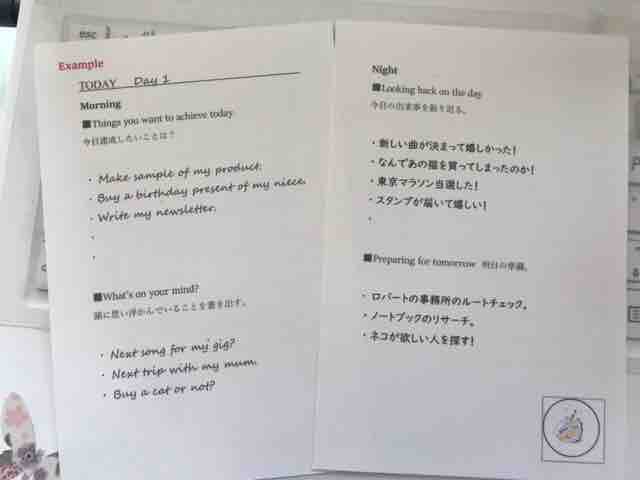 esc
Example
TODAY Day 1
Morning
■Things you want to achieve today.
今日達成したいことは？
・Make sample of my product.
・Buy a birthday present of my niece.
・Write my newsletter.
・
・
■What's on your mind?
頭に思い浮かんでいることを書き出す。
・Next song for my gig?
・Next trip with my mum.
・Buy a cat or not?
Night
■Looking back on the day.
今日の出来事を振り返る。
・新しい曲が決まって嬉しかった！
・なんであの猫を買ってしまったのか！
・東京マラソン当選した！
・スタンプが届いて嬉しい！
・
■Preparing for tomorrow 明日の準備。
・ロバートの事務所のルートチェック。
・ノートブックのリサーチ。
・ネコが欲しい人を探す！